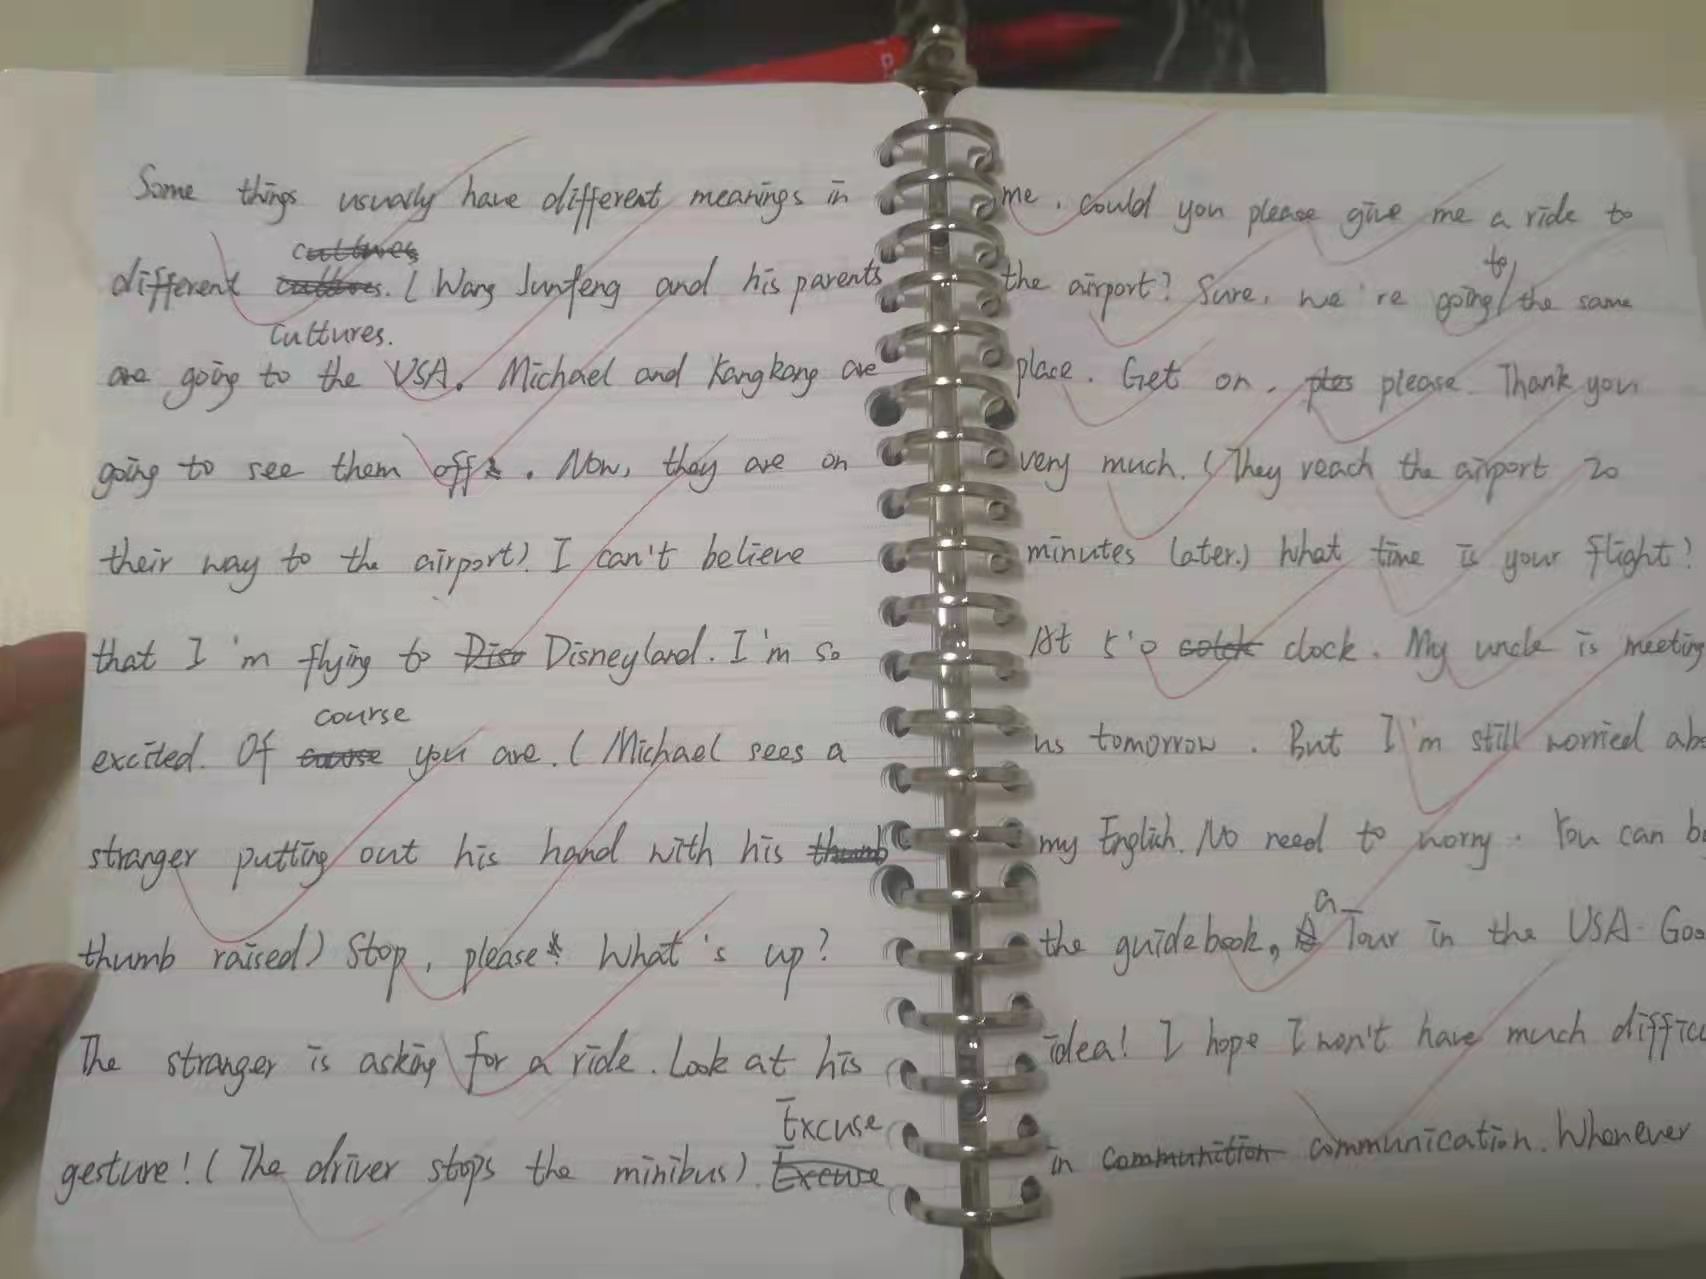 Some things usually have different meanings in
cultures
different cultures. (Wang Junfeng and his parents
cultures.
are going to the USA. Michael and Kangkang are
going to see them off. Now, they are on
their way to the airport) I can't believe
that I'm flying to Diso Disneyland. I'm so
course
excited. Of course you are. (Michael sees a
stranger putting out his hand with his thumb
thumb raised) Stop, please. What's up?
The stranger is asking for a ride. Look at his
Excuse
gesture! (The driver stops the minibus). Excuse
me, could you please give me a ride to
to
the airport? Sure, we're going the same
place. Get on, ples please. Thank you
very much. (They reach the airport 20
minutes later.) What time is your flight?
At 5'o colck clock. My uncle is meeting
us tomorrow. But I'm still worried abo
my English. No need to worry. You can b
a
the guidebook, A Tour in the USA. Goo
idea! I hope I won't have much difficu
in communition communication. Whenever